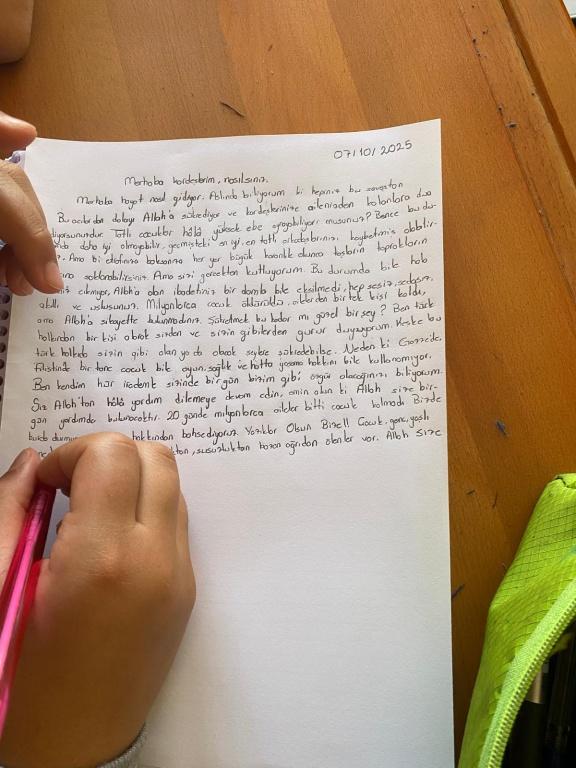 07/10/2025
Merhaba kardeşlerim, nasılsınız.
Merhaba hayat nasıl gidiyor. Aslında biliyorum ki hepiniz bu savaştan
Bu acılardan dolayı Allah'a şükrediyor ve kardeşlerinize ailenizden kalanlara dua
diyorsunuzdur. Tatlı çocuklar hâlâ yüksek ebe oynayabiliyor musunuz? Bence bu du-
daha iyi olmayabilir, geçmişteki en iyi, en tatlı arkadaşlarınızı kaybetmiş olabilir-
Ama bi etrafınıza baksanıza her yer büyük karanlık olunca taşların toprakların
saklanabilirsiniz. Ama sizi gerçekten kutluyorum. Bu durumda bile
çıkmıyor, Allah'a olan ibadetiniz bir damla bile eksilmedi, hep sessiz, sedasız,
akıllı ve uslusunuz. Milyonlarca çocuk öldürüldü, ailelerden bir tek kişi kaldı,
ama Allah'a şikayette bulunmadınız. Şükretmek bu kadar mı güzel bir şey? Ben türk
halkından bir kişi olarak sizden ve sizin gibilerden gurur duyuyorum. Keşke bu
türk halkıda sizin gibi olan ya da olacak şeylere şükredebilse. Neden ki Gazzede,
Filistinde bir tane çocuk bile oyun, sağlık ve hatta yaşama hakkını bile kullanamıyor.
Ben kendim hür irademle sizinde bir gün bizim gibi özgür olacağınızı biliyorum.
Siz Allah'tan hâlâ yardım dilemeye devam edin, emin olun ki Allah size bir-
gün yardımda bulunacaktır. 20 günde milyonlarca aileler bitti çocuk kalmadı Bizde
burda hakkından bahsediyoruz. Yazıklar Olsun Bize!! Çocuk, genç, yaşlı
susuzluktan bazen ağrıdan ölenler var. Allah size